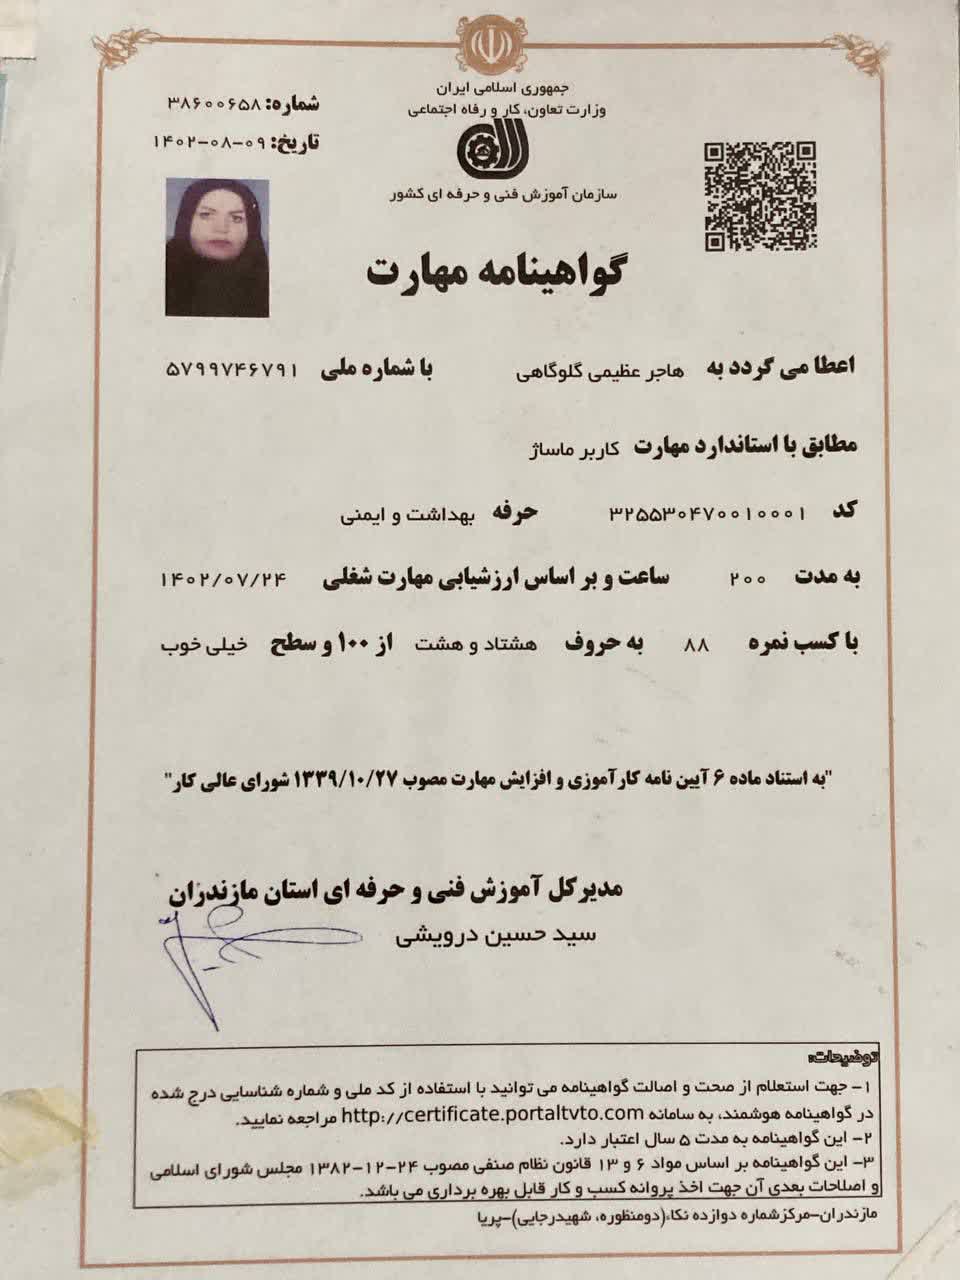 جمهوری اسلامی ایران
وزارت تعاون، کار و رفاه اجتماعی
سازمان آموزش فنی و حرفه ای کشور
شماره: ۳۸۶۰۰۶۵۸
تاریخ: ۱۴۰۲-۰۸-۰۹
گواهینامه مهارت
اعطا می گردد به هاجر عظیمی گلوگاهی با شماره ملی ۵۷۹۹۷۴۶۷۹۱
مطابق با استاندارد مهارت کاربر ماساژ
کد ۳۲۵۵۳۰۴۷۰۰۱۰۰۰۱ حرفه بهداشت و ایمنی
به مدت ۲۰۰ ساعت و بر اساس ارزشیابی مهارت شغلی ۱۴۰۲/۰۷/۲۴
با کسب نمره ۸۸ به حروف هشتاد و هشت از ۱۰۰ و سطح خیلی خوب
"به استناد ماده ۶ آیین نامه کارآموزی و افزایش مهارت مصوب ۱۳۳۹/۱۰/۲۷ شورای عالی کار"
مدیرکل آموزش فنی و حرفه ای استان مازندران
سید حسین درویشی
توضیحات:
۱- جهت استعلام از صحت و اصالت گواهینامه می توانید با استفاده از کد ملی و شماره شناسایی درج شده
در گواهینامه هوشمند، به سامانه http://certificate.portaltvto.com مراجعه نمایید.
۲- این گواهینامه به مدت ۵ سال اعتبار دارد.
۳- این گواهینامه بر اساس مواد ۶ و ۱۳ قانون نظام صنفی مصوب ۲۴-۱۲-۱۳۸۲ مجلس شورای اسلامی
و اصلاحات بعدی آن جهت اخذ پروانه کسب و کار قابل بهره برداری می باشد.
مازندران-مرکزشماره دوازده نکاء(دومنظوره، شهیدرجایی)-پریا